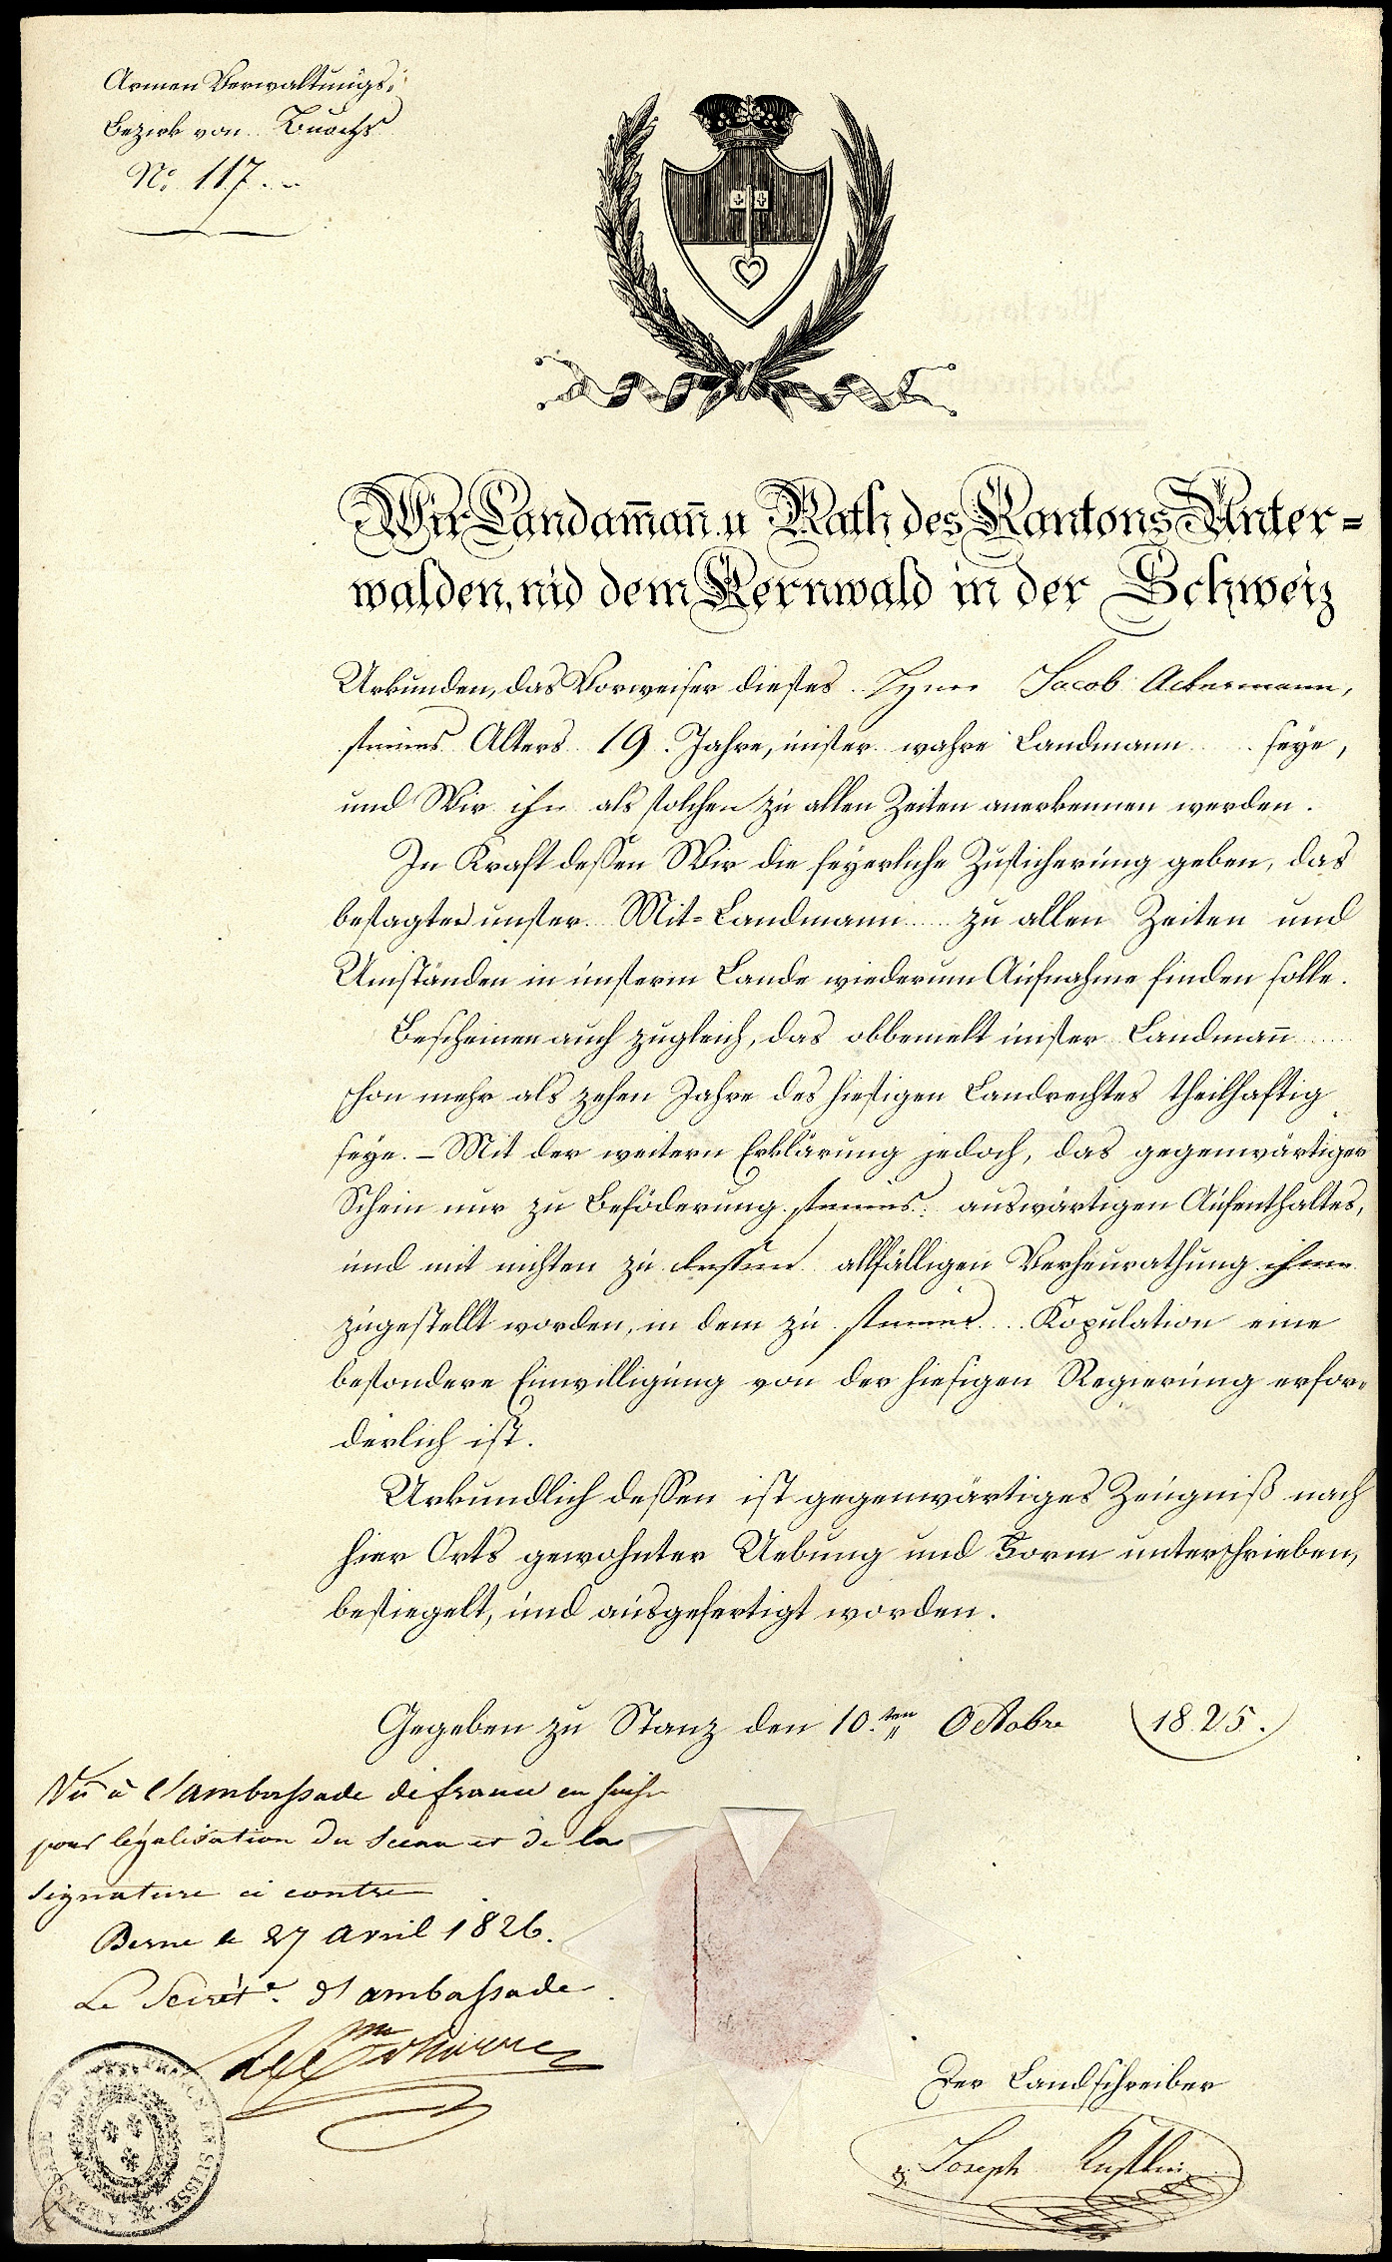 Armen Verwaltungs-
Bezirk von Buochs
No. 117.
Wir Landam̄an̄ u Rath des Kantons Unter=
walden, nid dem Kernwald in der Schweiz
Urkunden, das Vorweiser dieses Jacob Ackermann,
seines Alters 19. Jahre, unser wahre Landmann seye,
und Wir ihn als solchen zu allen Zeiten anerkennen werden.
In Kraft dessen Wir die feyerliche Zusicherung geben, das
besagter unser Mit=Landmann zu allen Zeiten und
Umständen in unserm Lande wiederum Aufnahme finden solle.
Bescheinen auch zugleich, das obbemelt unser Landman̄
schon mehr als zehen Jahre des hiesigen Landrechtes theilhaftig
seye. – Mit der weitern Erklärung jedoch, das gegenwärtiger
Schein nur zu Beföderung seines auswärtigen Aufenthaltes,
und mit nichten zu dessen allfälligen Verheurathung ihme
zugestellt worden, in dem zu seiner Kopulation eine
besondere Einwilligung von der hiesigen Regierung erfor=
derlich ist.
Urkundlich dessen ist gegenwärtiges Zeugniß nach
hier Orts gewohnter Uebung und Form unterschrieben,
besiegelt, und ausgefertigt worden.
Gegeben zu Stanz den 10.ten Octobre 1825.
Vu à l'ambassade de france en suisse
pour légalisation du Sceau et de la
signature ci contre
Berne le 27 avril 1826.
Le Secrét.e d'ambassade.
AMBASSADE DE FRANCE EN SUISSE
Der Landschreiber
Joseph